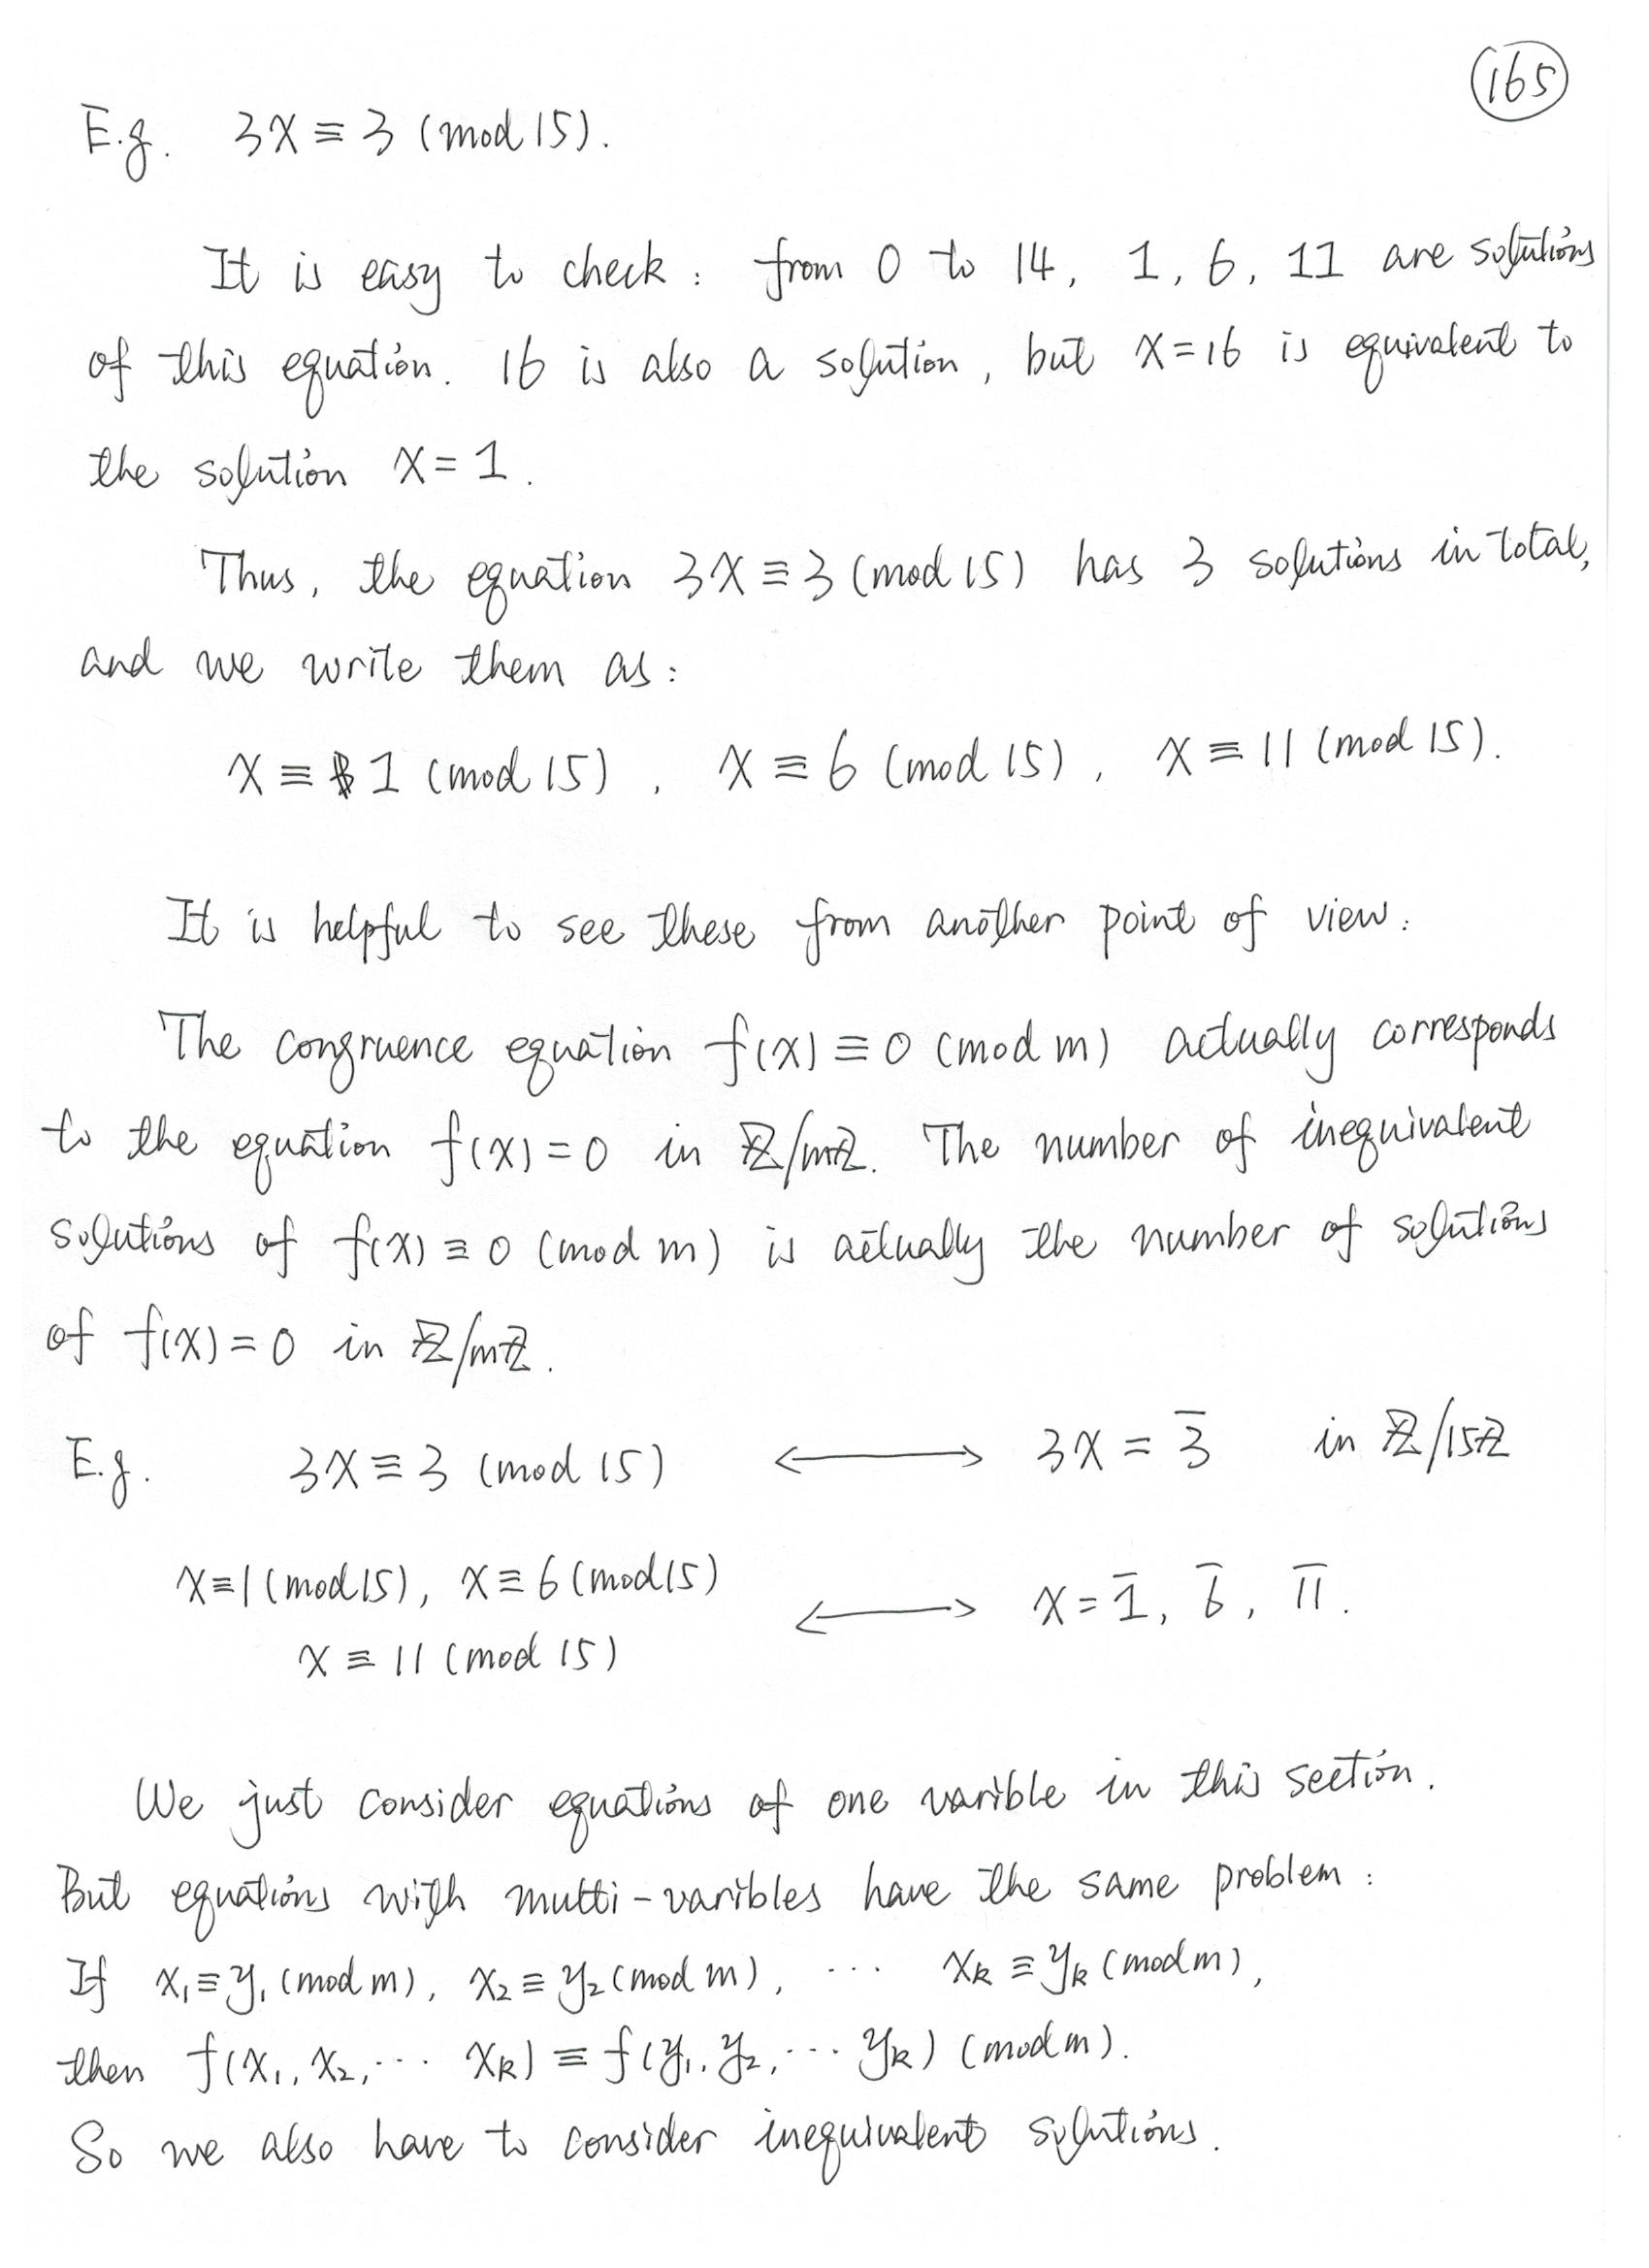 165
E.g. 3X ≡ 3 (mod 15).
It is easy to check : from 0 to 14, 1, 6, 11 are solutions
of this equation. 16 is also a solution, but X=16 is equivalent to
the solution X = 1.
Thus, the equation 3X ≡ 3 (mod 15) has 3 solutions in total,
and we write them as :
X ≡ 1 (mod 15), X ≡ 6 (mod 15), X ≡ 11 (mod 15).
It is helpful to see these from another point of view :
The congruence equation f(X) ≡ 0 (mod m) actually corresponds
to the equation f(X) = 0 in ℤ/mℤ. The number of inequivalent
solutions of f(X) ≡ 0 (mod m) is actually the number of solutions
of f(X) = 0 in ℤ/mℤ.
E.g. 3X ≡ 3 (mod 15) ⟷ 3X = 3̄ in ℤ/15ℤ
X ≡ 1 (mod 15), X ≡ 6 (mod 15)
X ≡ 11 (mod 15) ⟷ X = 1̄, 6̄, 1̄1̄.
We just consider equations of one varible in this section.
But equations with multi-varibles have the same problem :
If X₁ ≡ y₁ (mod m), X₂ ≡ y₂ (mod m), ... Xₖ ≡ yₖ (mod m),
then f(X₁, X₂, ... Xₖ) ≡ f(y₁, y₂, ... yₖ) (mod m).
So we also have to consider inequivalent solutions.